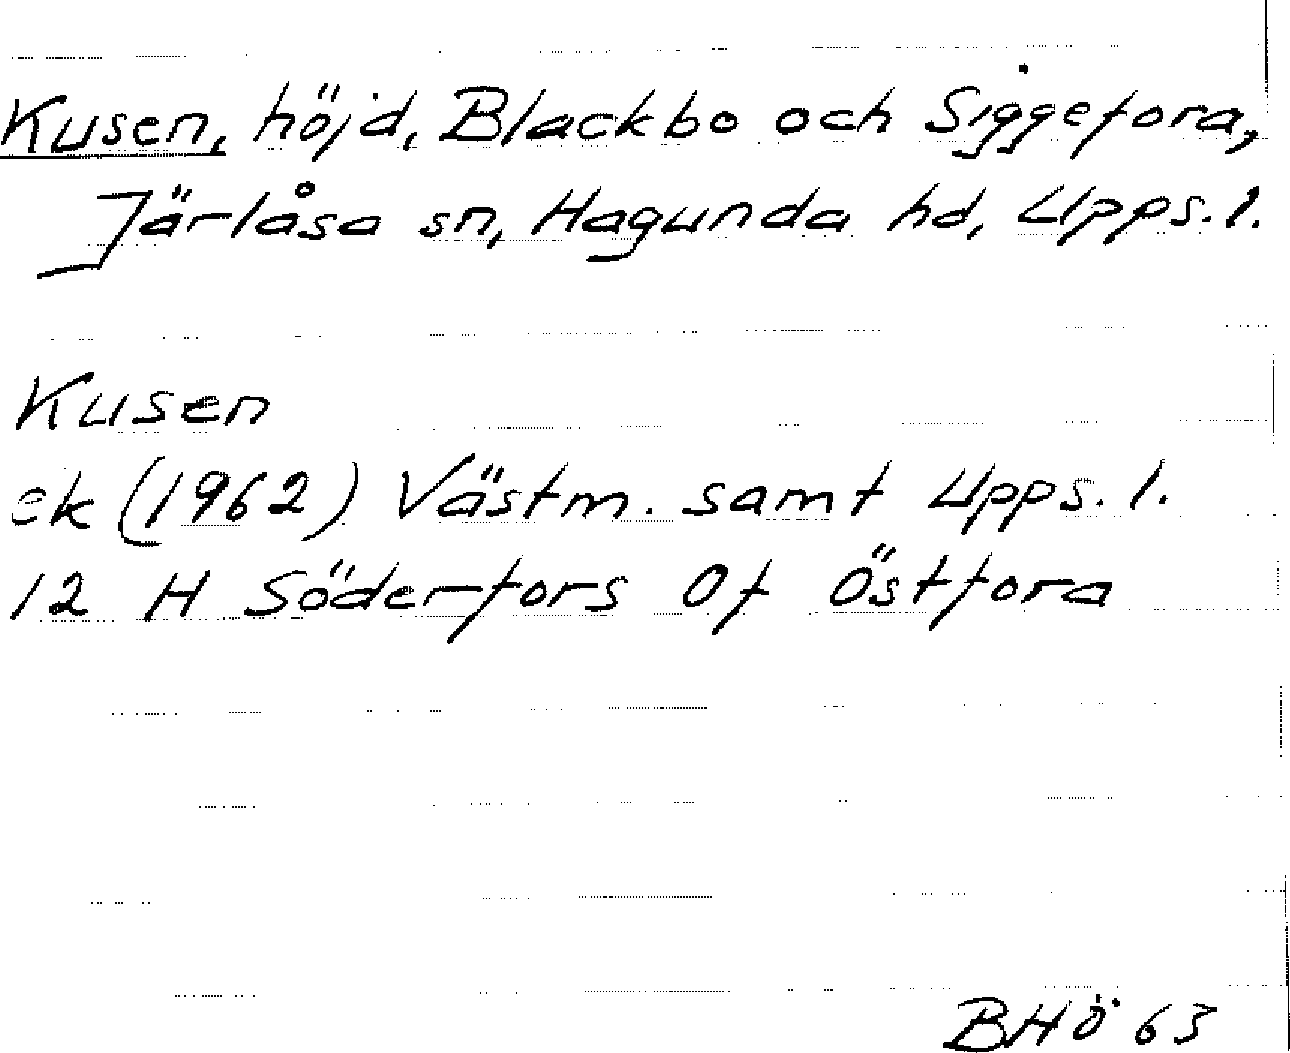 Kusen, höjd, Blackbo och Siggefora,
Järlåsa sn, Hagunda hd, Upps. l.
Kusen
ek (1962) Västm. samt Upps. l.
12 H Söderfors Of Östfora
BHÖ 63